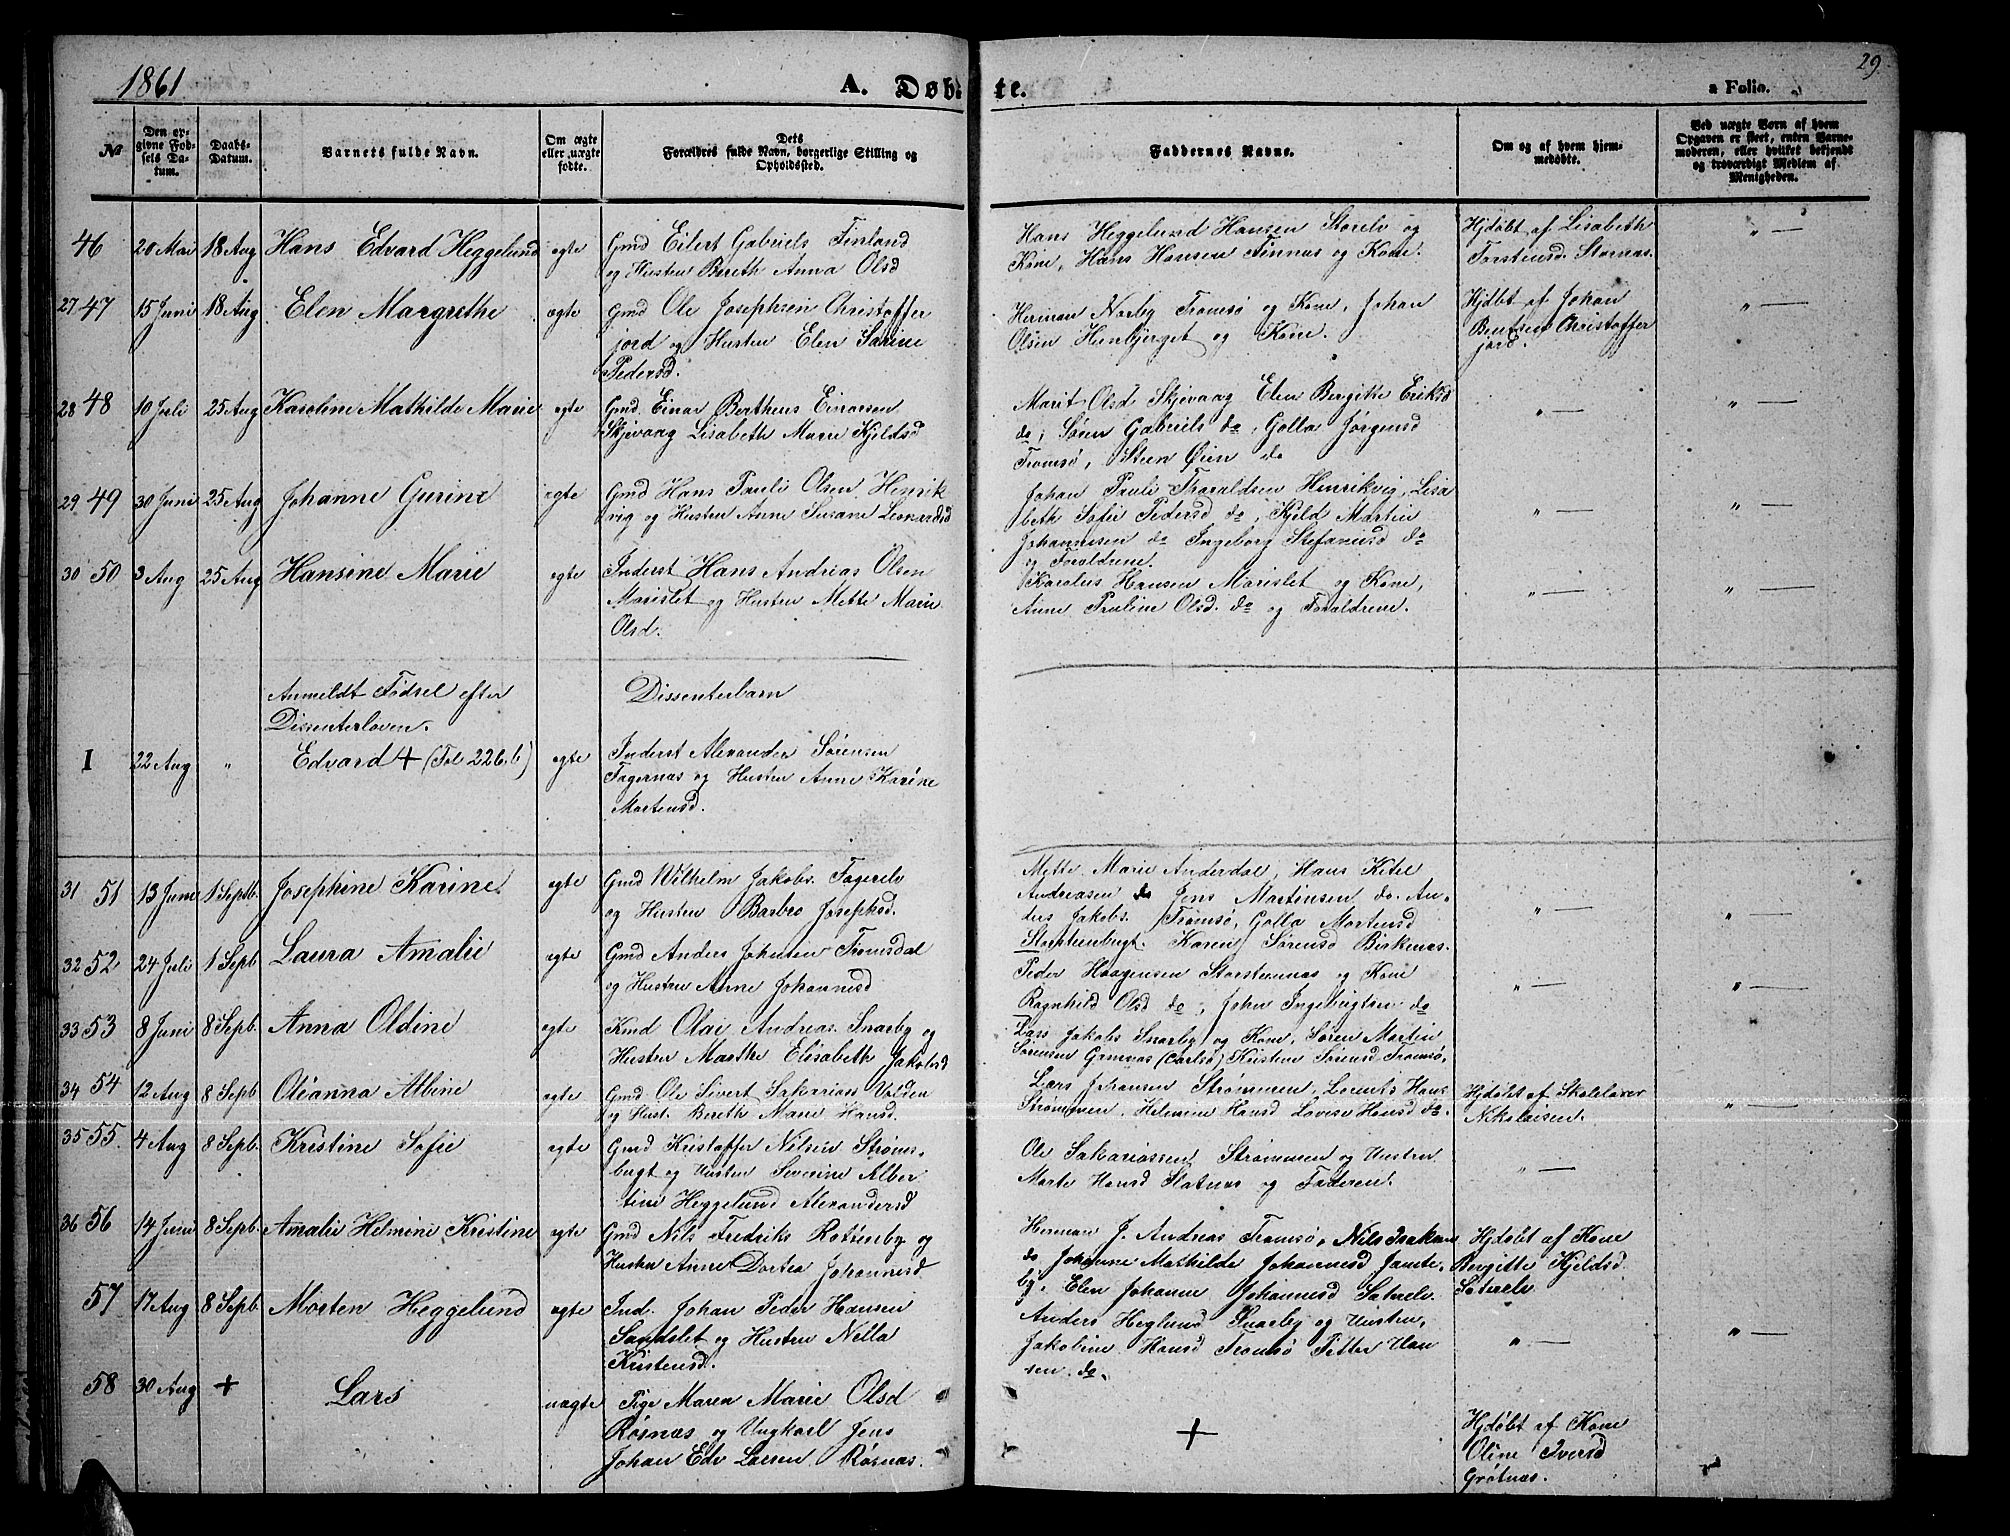 1861
A. Døbte.
a Folio.
29
№
Den opgivne Fødsels Datum.
Daabs-Datum.
Barnets fulde Navn.
Om ægte eller uægte fødte.
Dets Forældres fulde Navn, borgerlige Stilling og Opholdssted.
Faddernes Navne.
Om og af hvem hjemmedøbte.
Ved uægte Børn af hvem Opgaven er skeet, enten Barnemoderen, eller hvilket bekjendt og troværdigt Medlem af Menigheden.
46 20 Mai 18 Aug Hans Edvard Heggelund egte
Gmd Eilert Gabriels Finland
og Hustru Bereth Anna Olsd
Hans Heggelund Hansen Storelv og
Kone, Hans Hansen Finnæs og Kone.
Hjdøbt af Lisabeth
Torstensd. Stornæs.
" —
27 47 15 Juni 18 Aug Elen Margrethe egte
Gmd Ole Josephsen Christoffer
jord og Hustru Elen Sarine
Pedersd.
Herman Norby Tromsø og Kone, Johan
Olsen Hunbjerget og Kone.
Hjdøbt af Johan
Bentsen Christoffer
jord.
" —
28 48 10 Juli 25 Aug Karoline Mathilde Marie egte
Gmd. Einar Bertheus Einarsen
Skjevaag Lisabeth Marie Kjeldsd
Marit Olsd Skjevaag Elen Bergithe Eriksd
do, Søren Gabriels do, Golla Jørgensd
Tromsø, Steen Øien do
" —
" —
29 49 30 Juni 25 Aug Johanne Gurine egte
Gmd Hans Pauli Olsen Henrik
vig og Hustru Anne Susane Leonardsd
Johan Pauli Thoraldsen Henrikvig, Lisa
beth Sofie Pedersd do, Kjeld Martin
Johannesen do Ingeborg Stefanusd do
og Forældrene.
" —
" —
30 50 3 Aug 25 Aug Hansine Marie egte
Inderst Hans Andreas Olsen
Marislet og Hustru Mette Marie
Olsd.
Karolus Hansen Marislet og Kone,
Anne Pauline Olsd. do og Forældrene.
" —
" —
Anmeldt Fødsel efter
Dissenterloven.
Dissenterbarn
I 22 Aug " Edvard + (Fol 226, b) egte
Inderst Alexander Sørensen
Fagernæs og Hustru Anne Karine
Mortensd.
31 51 13 Juni 1 Septb. Josephine Karine egte
Gmd Wilhelm Jakobs. Fagerelv
og Hustru Barbro Josephsd.
Mette Marie Anderdal, Hans Ketel
Andreasen do Jens Martinsen do. An-
ders Jakobs. Tromsø, Golla Mortensd
Storsteenbugt. Karen Sørensd Birkenæs.
" —
" —
32 52 24 Juli 1 Sepb Laura Amalie egte
Gmd Anders Johnsen Tromsdal
og Hustru Anne Johannesd
Peder Haagensen Storstennæs og Kone
Ragnhild Olsd do, John Ingebrigtsen do
" —
" —
33 53 8 Juni 8 Sepb. Anna Oldine egte
Kmd Olai Andreas. Snarby og
Hustru Marthe Elisabeth Jakobsd
Lars Jakobs Snarby og Kone, Søren Martin
Sørensen Grønnæs (Carlsø) Kristen Sørensd Tromsø,
34 54 12 Aug 8 Sepb Oleanna Albine egte
Gmd Ole Sivert Sakarias Valden
og Hust. Bereth Marie Hansd.
Lars Johansen Strømmen, Lorents Hans
Strømmen, Helmine Hansd Lovise Hansd do.
Hjdøbt af Skolelærer
Nikolaisen.
" —
35 55 4 Aug 8 Sepb. Kristine Sofie egte
Gmd Kristoffer Nilsen Strøms-
bugt og Hustru Severine Alber
tine Heggelund Alexandersd
Ole Sakariassen Strømmen og Hustru
Marte Hansd Slatnæs og Faderen.
" —
36 56 14 Juni 8 Sepb. Amalie Helmine Kristine egte
Gmd Nils Fredriks Røtenby og
Hustru Anne Dortea Johannesd
Herman J. Andreas Tromsø, Nils Isaksen
do Johanne Mathilde Johannesd Jamte-
by, Elen Johanne Johannesd Sætrelv.
Hjdøbt af Kone
Birgitte Kjeldsd.
Sæterelv
57 17 Aug 8 Sepb. Morten Heggelund egte
Ind. Johan Peder Hansen
Sandslet og Hustru Nella
Kristensd.
Anders Heglund Snarby og Hustru,
Jakobine Hansd Tromsø Petter Han
sen do.
" —
" —
58 30 Aug + Lars uægte
Pige Maren Marie Olsd
Røsnæs og Ungkarl Jens
Johan Edv Larsen Røsnæs.
+
Hjdøbt af Kone
Oline Iversd
Grøtnæs.